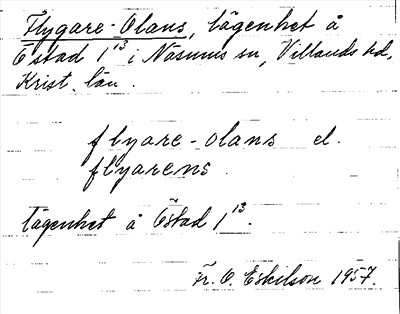 Flygare-Olans, lägenhet å
Östad 1¹³ i Näsums sn, Villands hd,
Krist. län.
flyare-olans el.
flyarens.
lägenhet å Östad 1¹³.
Fr. O. Eskilson 1957.